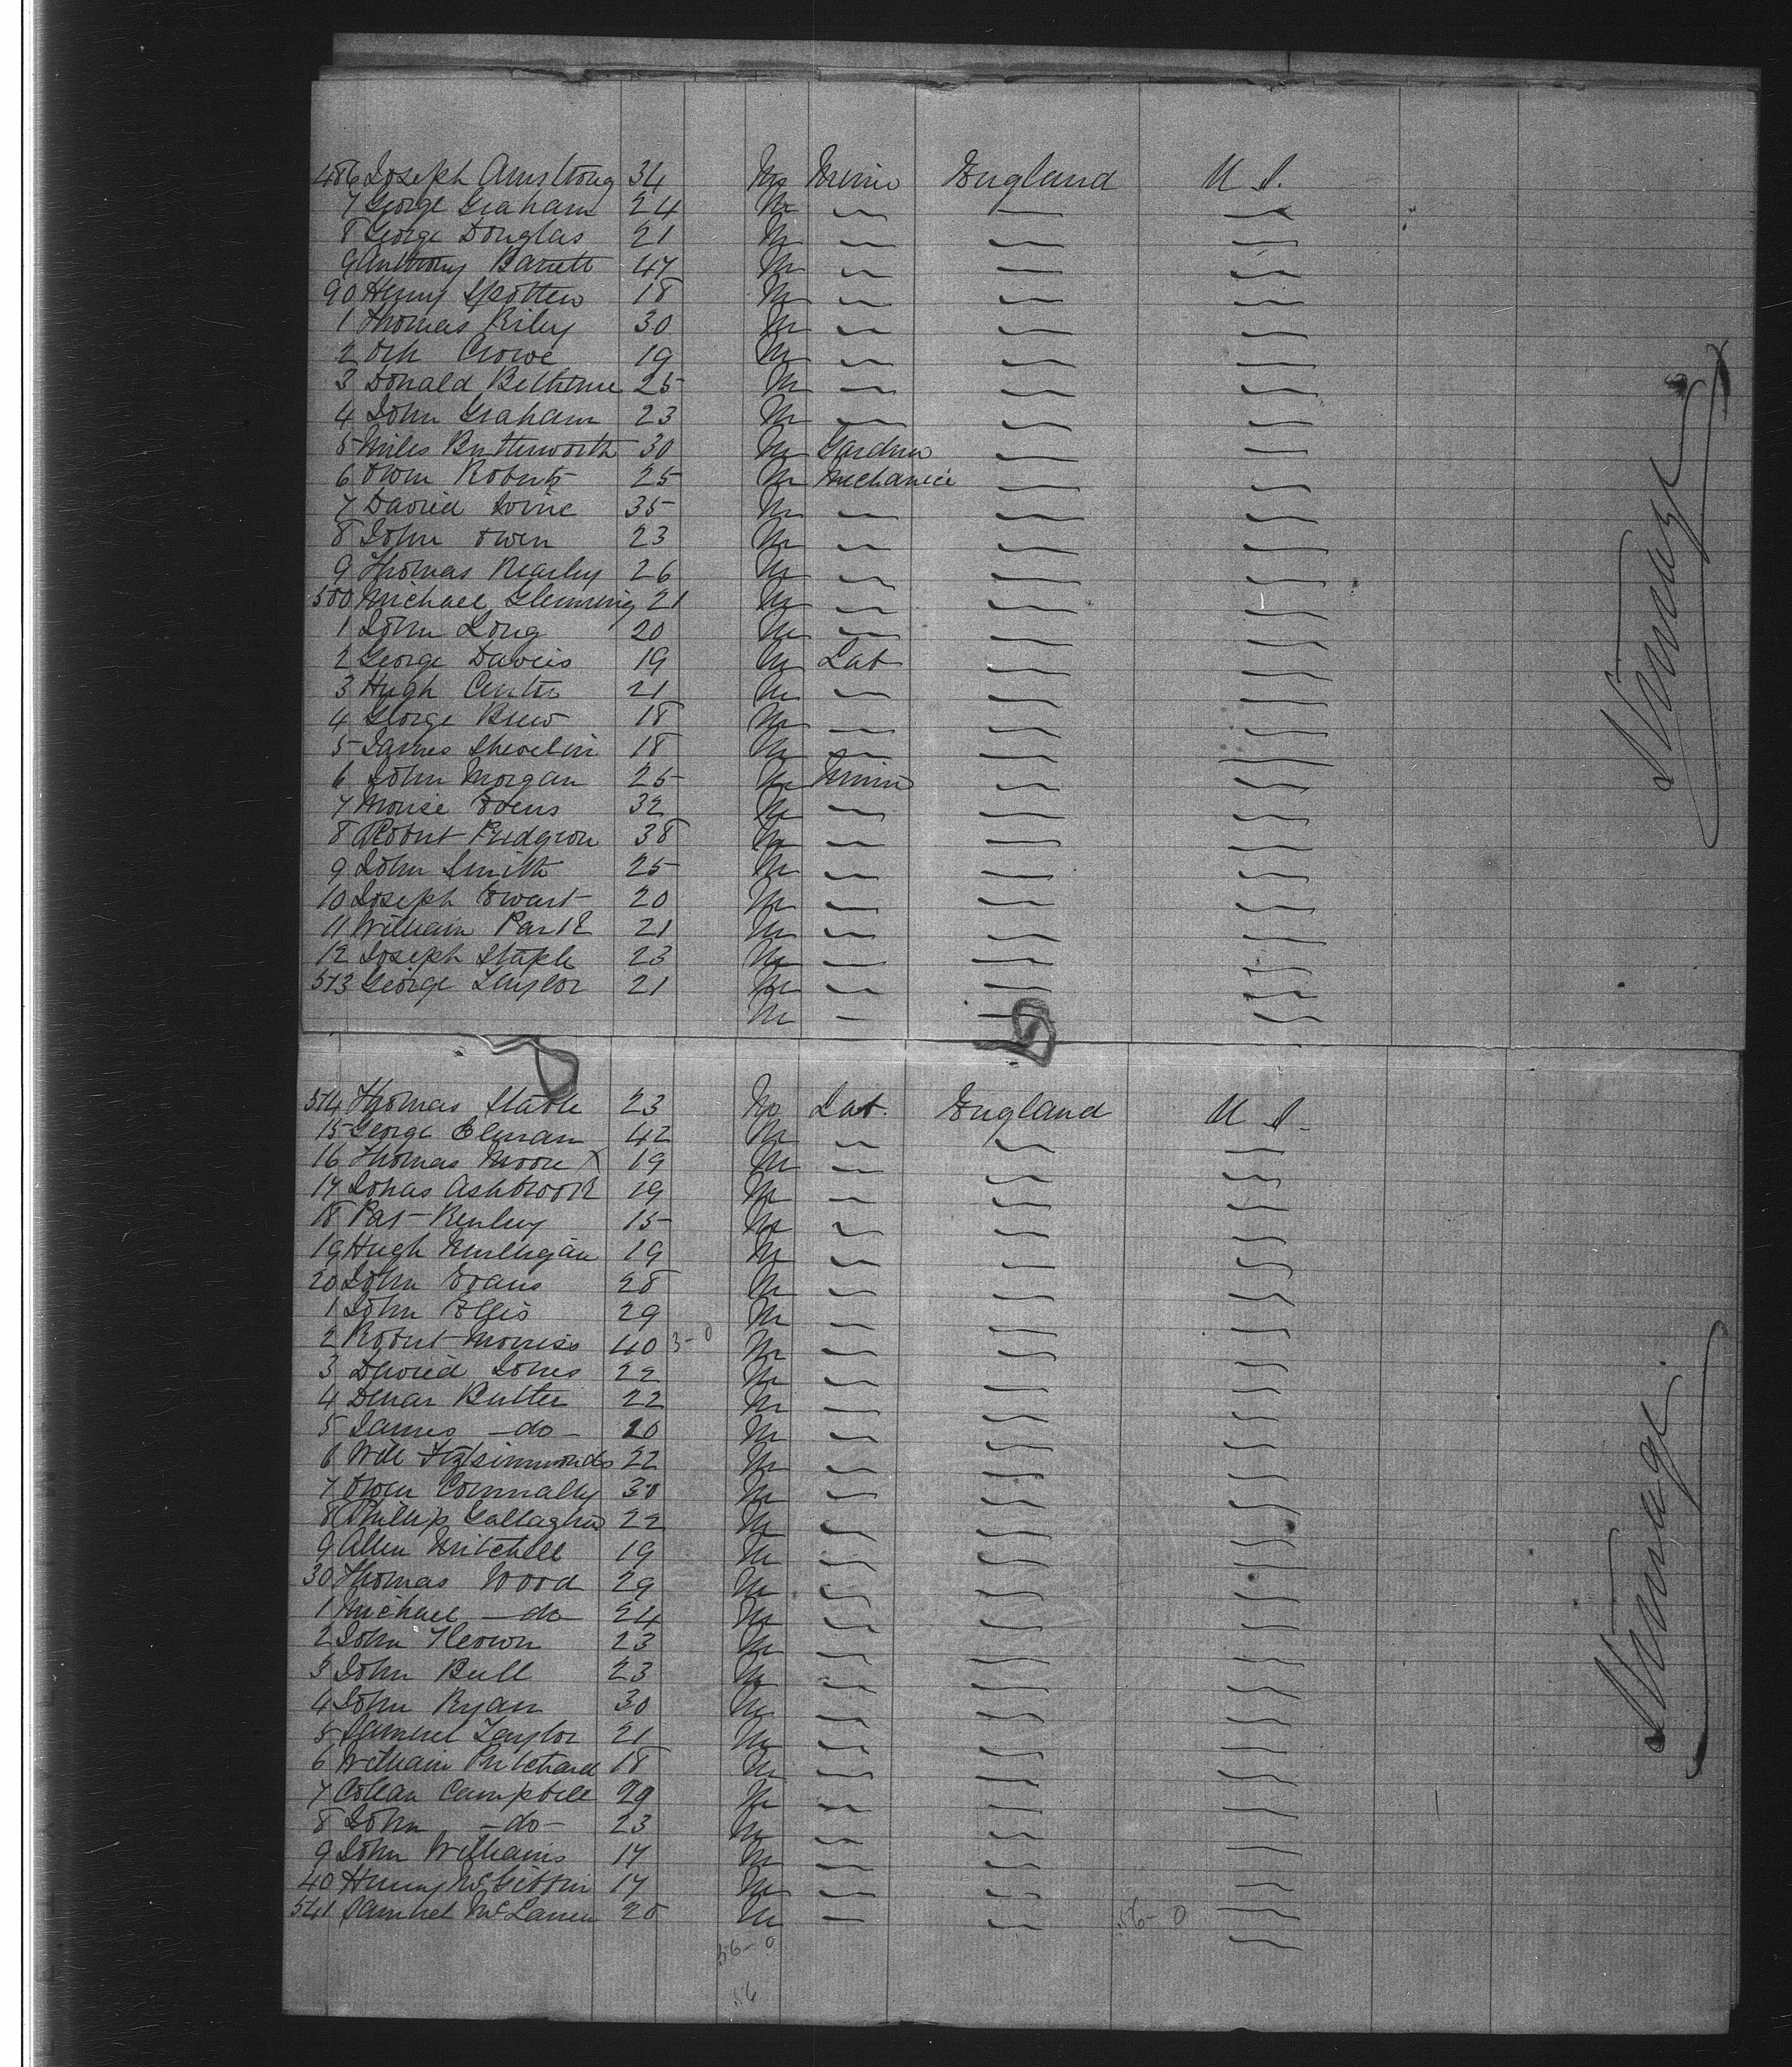 486 Joseph Armstrong 34 M Miner England U S.
7 George Graham 24 M " " "
8 George Douglas 21 M " " "
9 Anthony Barrett 47 M " " "
90 Henry Spotten 18 M " " "
1 Thomas Riley 30 M " " "
2 Crowe 19 M " " "
3 Donald Bethune 25 M " " "
4 John Graham 23 M " " "
5 Miles Butterworth 30 M Gardner " "
6 Owen Roberts 25 M Mechanic " "
7 David 35 M " " "
8 John Owen 23 M " " "
9 Thomas 26 M " " "
500 Michael Glenning 21 M " " "
1 John Long 20 M " " "
2 George Davies 19 M Lab " "
3 Hugh 21 M " " "
4 George Brew 18 M " " "
5 James Shevelin 18 M " " "
6 John Morgan 25 M Miner " "
7 32 M " " "
8 Robert Pridgeon 38 M " " "
9 John Smith 25 M " " "
10 Joseph Ewart 20 M " " "
11 William Park 21 M " " "
12 Joseph Staple 23 M " " "
513 George Taylor 21 M " " "
M " " "
514 Thomas 23 M Lab. England U S.
15 George 42 M " " "
16 Thomas Moore X 19 M " " "
17 Jonas Ashbrook 19 M " " "
18 Pat 15 M " " "
19 Hugh Mulligan 19 M " " "
20 John Evans 28 M " " "
1 John Ellis 29 M " " "
2 Robert Morriss 40 3-0 M " " "
3 David Jones 22 M " " "
4 Butler 22 M " " "
5 James -do- 20 M " " "
6 Will Fitzsimmonds 22 M " " "
7 Owen Connnally 30 M " " "
8 Phillip Gallagher 22 M " " "
9 Allen Mitchell 19 M " " "
30 Thomas Wood 29 M " " "
1 Michael -do- 24 M " " "
2 John 23 M " " "
3 John Bull 23 M " " "
4 John Ryan 30 M " " "
5 Samuel Taylor 21 M " " "
6 William Pritchard 18 M " " "
7 Collan Campbell 29 M " " "
8 John -do- 23 M " " "
9 John Williams 17 M " " "
40 Henry McGibbin 17 M " " "
541 Samuel McLaren 20 M " " 56-0 "
56-0
56